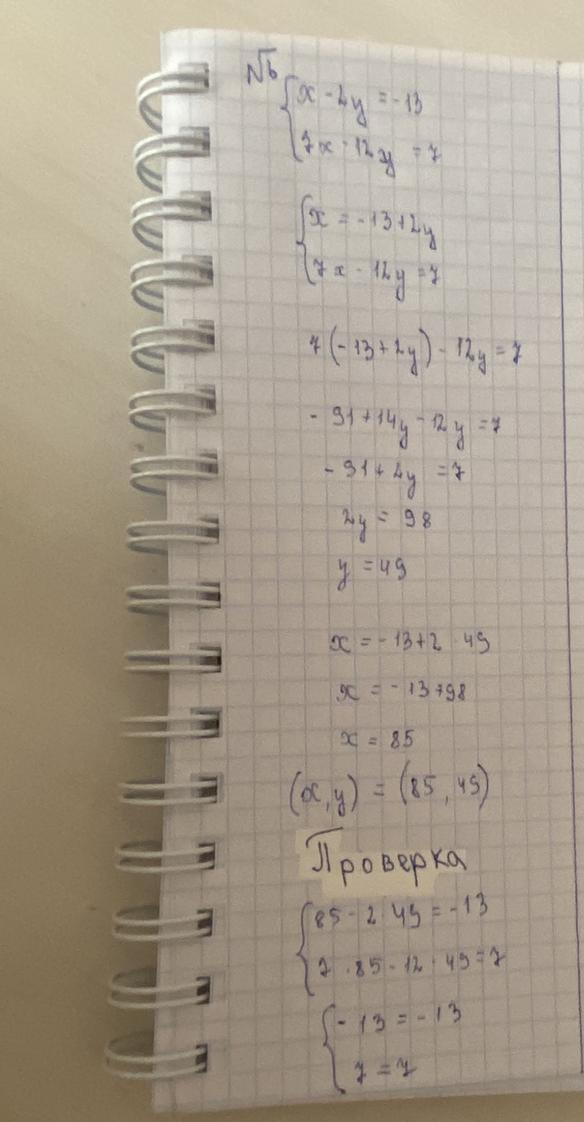 №6
x - 2y = -13
7x - 12y = 7
x = -13+2y
7x - 12y = 7
7(-13+2y) - 12y = 7
- 91+14y - 12y = 7
- 91+2y = 7
2y = 98
y = 49
x = -13+2 · 49
x = -13+98
x = 85
(x,y) = (85,49)
Проверка
85 - 2 · 49 = -13
7 · 85 - 12 · 49 = 7
- 13 = -13
7 = 7